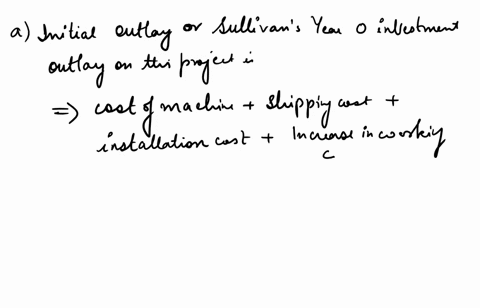 a) Initial outlay or Sullivan's Year 0 investment
outlay on this project is
=> cost of machine + shipping cost +
installation cost + Increase in working
c